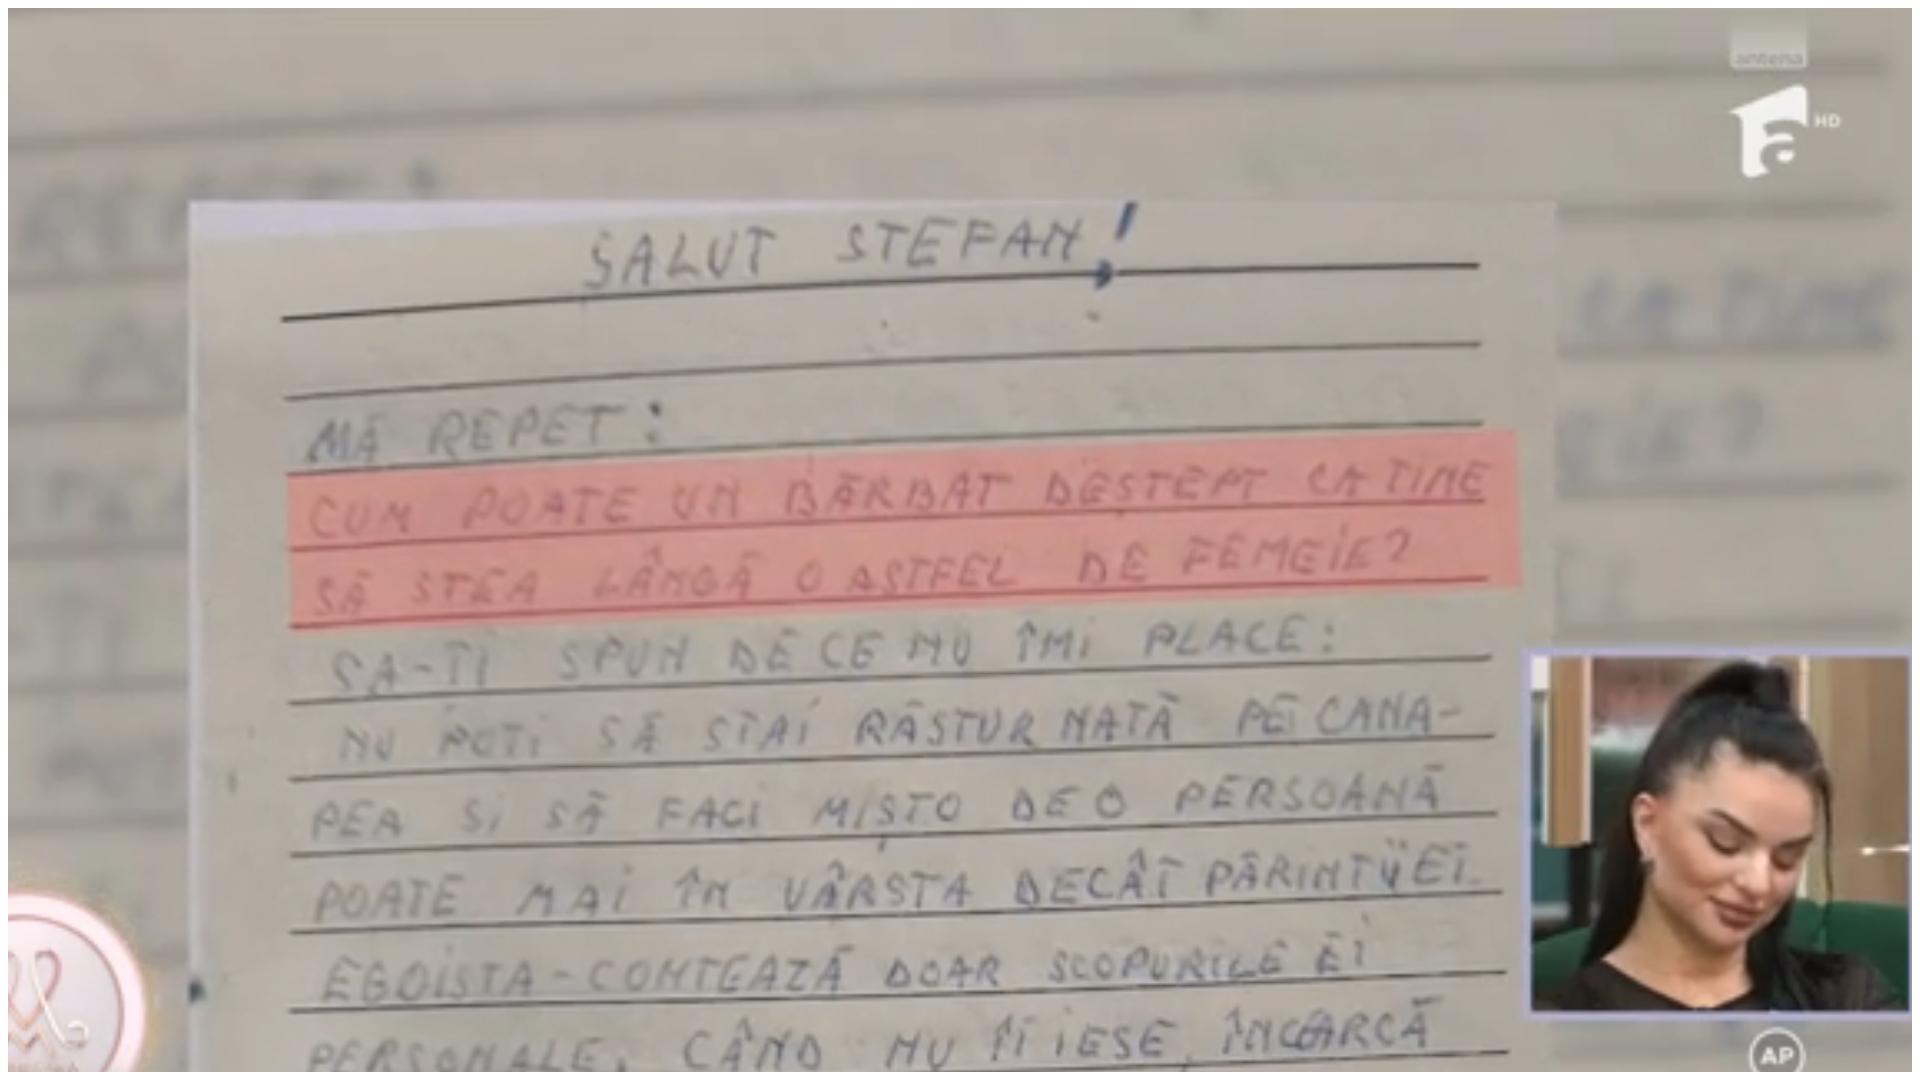 antena
a HD
SALUT STEFAN!
MĂ REPET:
CUM POATE UN BĂRBAT DEȘTEPT CA TINE
SĂ STEA LÂNGĂ O ASTFEL DE FEMEIE?
SA-TI SPUN DE CE NU ÎMI PLACE:
NU POTI SĂ STAI RĂSTURNATĂ PE CANA-
PEA SI SĂ FACI MIȘTO DE O PERSOANĂ
POATE MAI ÎN VÂRSTA DECÂT PĂRINTII EI.
EGOISTA - CONTEAZĂ DOAR SCOPURILE EI
PERSONALE, CÂND NU ÎI IESE, ÎNCARCĂ
AP